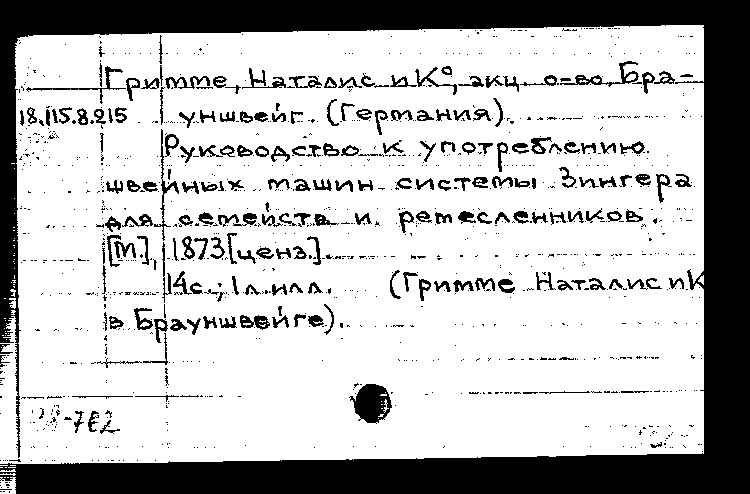 Гримме, Наталис и К⁰, акц. о-во, Бра-
18.115.8.215 уншвейг. (Германия).
Руководство к употреблению
швейных машин системы Зингера
для семейств и ремесленников.
[М.], 1873[ценз.].
14с.; 1л.илл. (Гримме Наталис и К
в Брауншвейге).